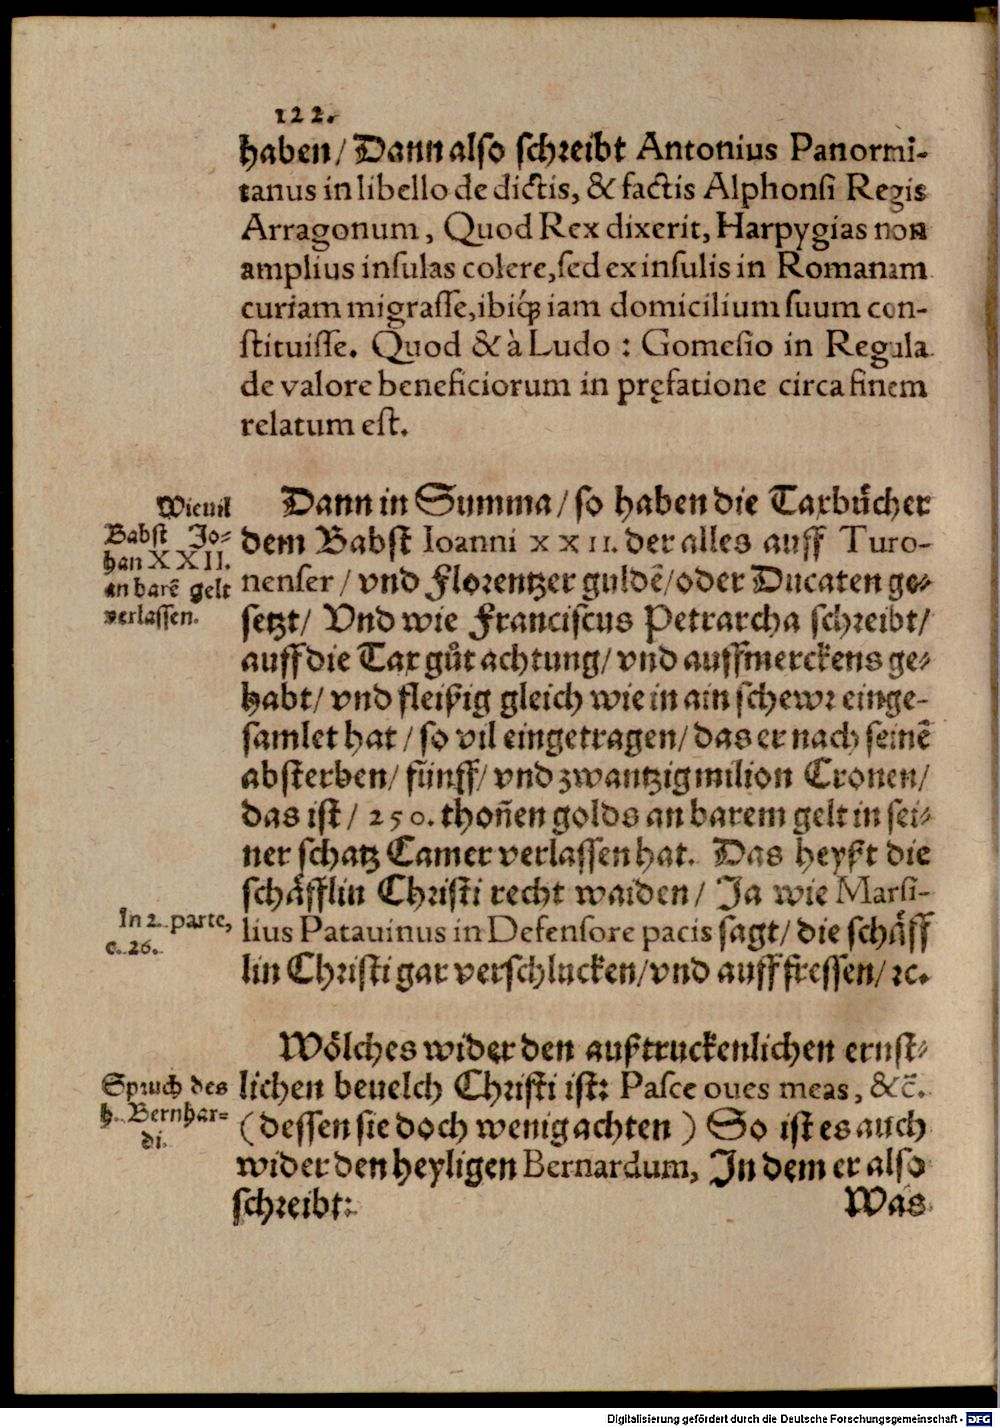 122.
haben/ Dann also schreibt Antonius Panormi-
tanus in libello de dictis, & factis Alphonsi Regis
Arragonum, Quod Rex dixerit, Harpygias non
amplius insulas colere, sed ex insulis in Romanam
curiam migrasse, ibiq́ꝫ iam domicilium suum con-
stituisse. Quod & à Ludo : Gomesio in Regula
de valore beneficiorum in pręfatione circa finem
relatum est.
Dann in Summa/ so haben die Taxbuͤcher
dem Babst Ioanni XXII. der alles auff Turo-
nenser/ vnd Florentzer guldẽ/ oder Ducaten ge-
setzt/ Vnd wie Franciscus Petrarcha schreibt/
auff die Tax guͦt achtung/ vnd auffmerckens ge-
habt/ vnd fleißig gleich wie in ain schewr einge-
samlet hat/ so vil eingetragen/ das er nach seinẽ
absterben/ fünff/ vnd zwantzig milion Cronen/
das ist/ 250. thoñen golds an barem gelt in sei-
ner schatz Camer verlassen hat. Das heyßt die
schaͤfflin Christi recht waiden/ Ja wie Marsi-
lius Patauinus in Defensore pacis sagt/ die schaͤff
lin Christi gar verschlucken/ vnd auff fressen/ ꝛc.
Woͤlches wider den außtruckenlichen ernst-
lichen beuelch Christi ist: Pasce oues meas, &c̃.
(dessen sie doch wenig achten) So ist es auch
wider den heyligen Bernardum, In dem er also
schreibt:
Was
Wieuil
Babst Jo-
han XXII.
an barẽ gelt
verlassen.
In 2. parte,
c. 26.
Spruch des
h. Bernhar-
di.
Digitalisierung gefördert durch die Deutsche Forschungsgemeinschaft - DFG